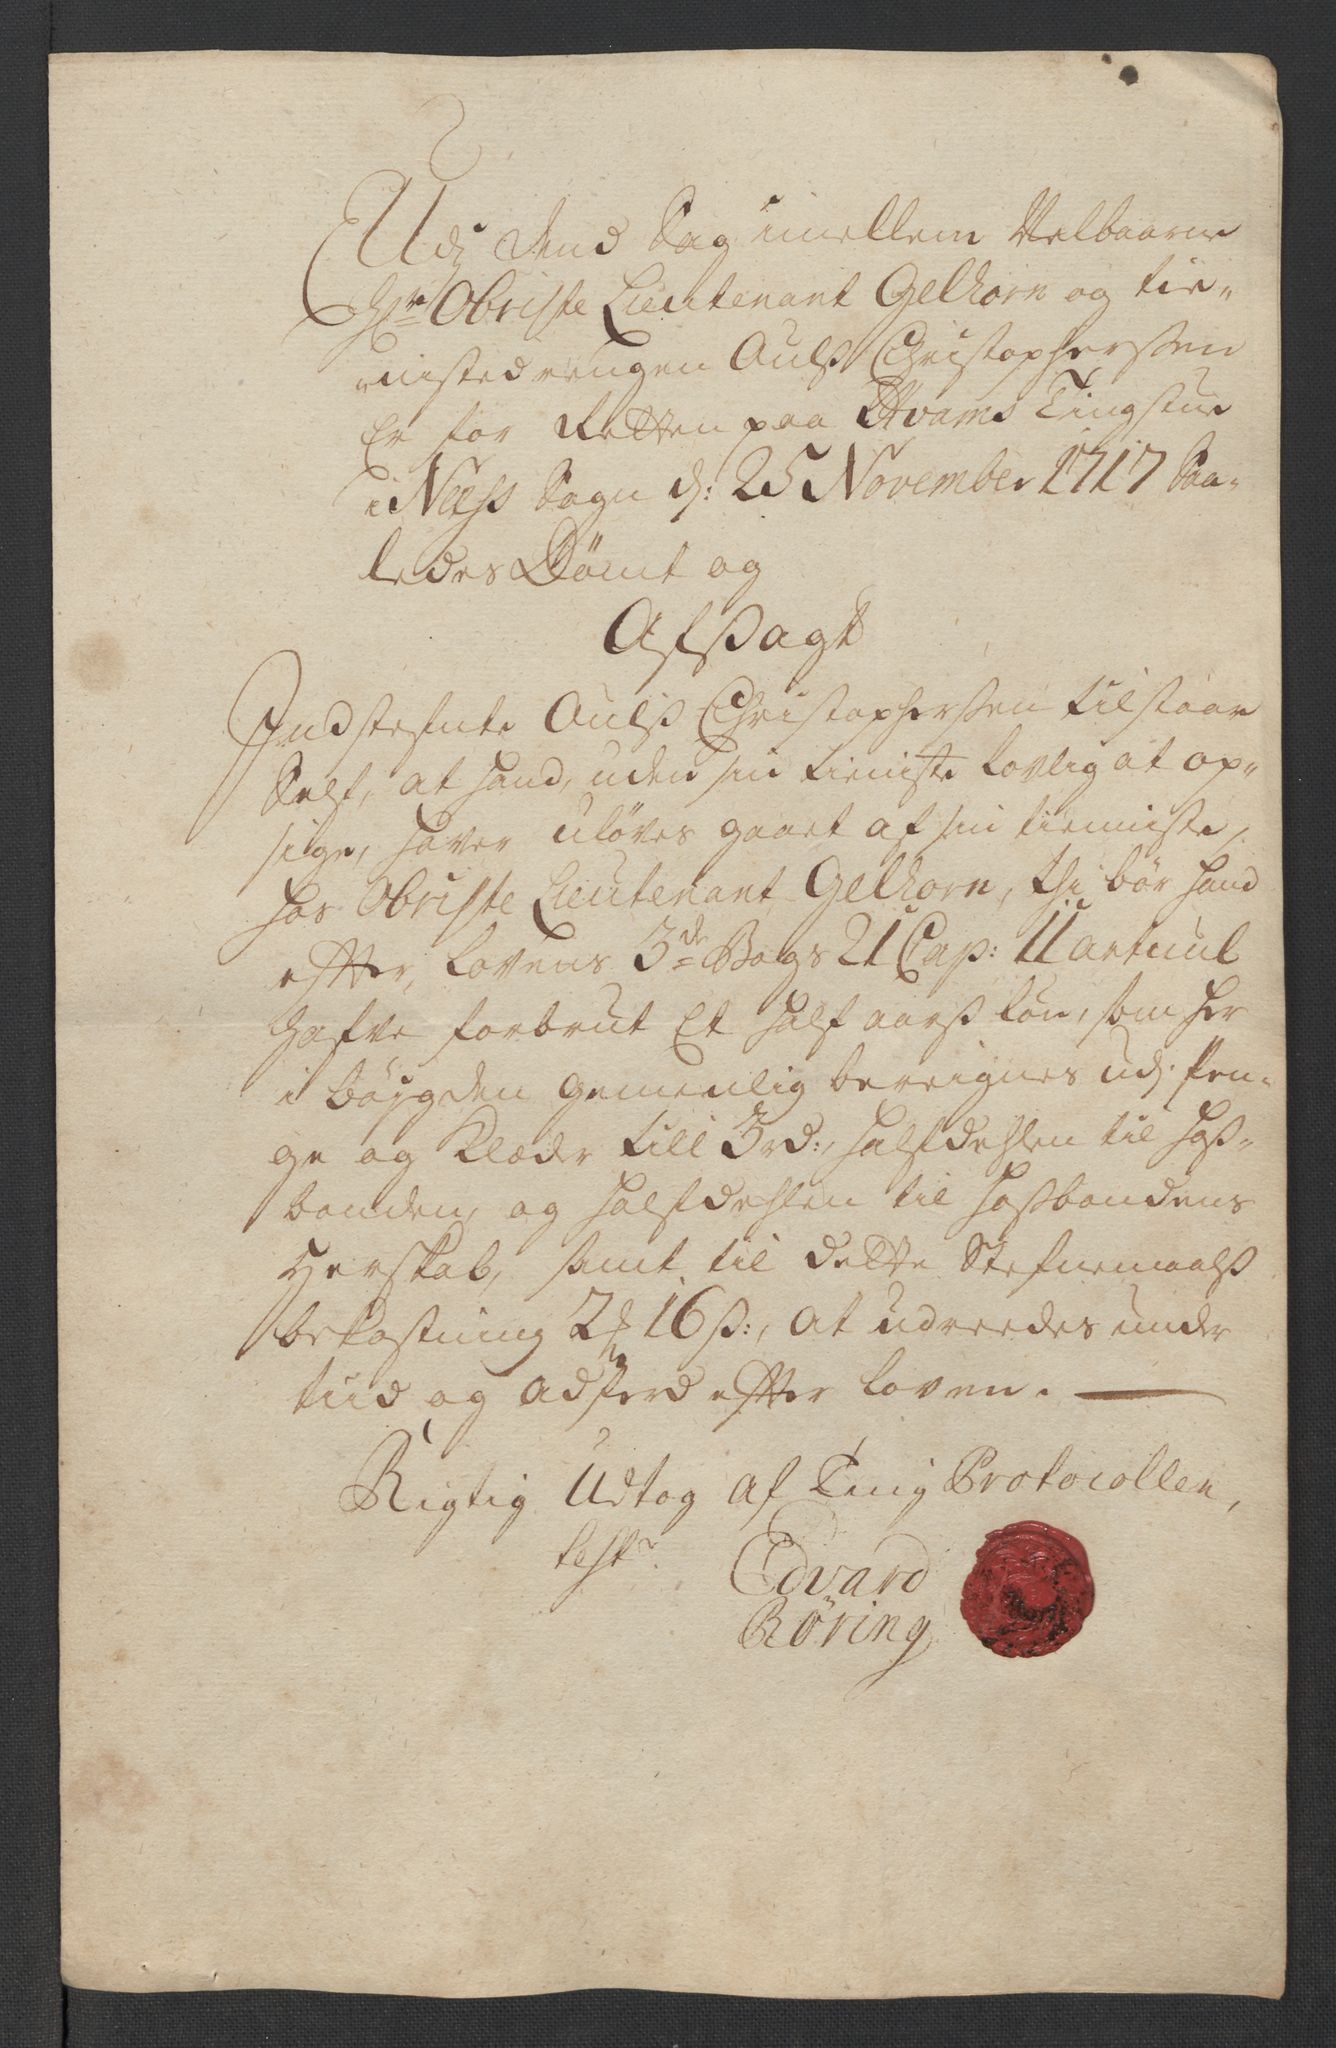 Udj dend Sag imellem Velbaarne
Hr: Obriste Lieutenant Gelhorn og tie-
nistedrengen Oulß Christopherßen
Er for Retten paa Hvams Tingstue
i Næss Sogn d: 25 November 1717 Saa-
ledes Dömt og
Afßagt
Indstefnte Oulß Christopherßen tilstaar
Self, at hand, uden sin tieniste lovlig at op-
sige, haver ulöves gaaet af sin tienniste,
hos Obriste Lieutenant Gelhorn, thj bör hand
efter, Lovens 3de Bogs 21 Cap: 11 articul
hafve forbrut Et half aarß lön, som her
i böygden gemeenlig bereignes udj Pen-
ge og Klæder till 3 rd:, halfdehlen til hoß-
bonden, og halfdehlen til hoßbondens
Herskab, samt til dette Stefnemaalß
bekostning 2 rd 16 ß:, at udreedes under
tiid og adferd efter loven.
Rigtig Udtog af Ting Protocollen,
test:
Edvard
Röring